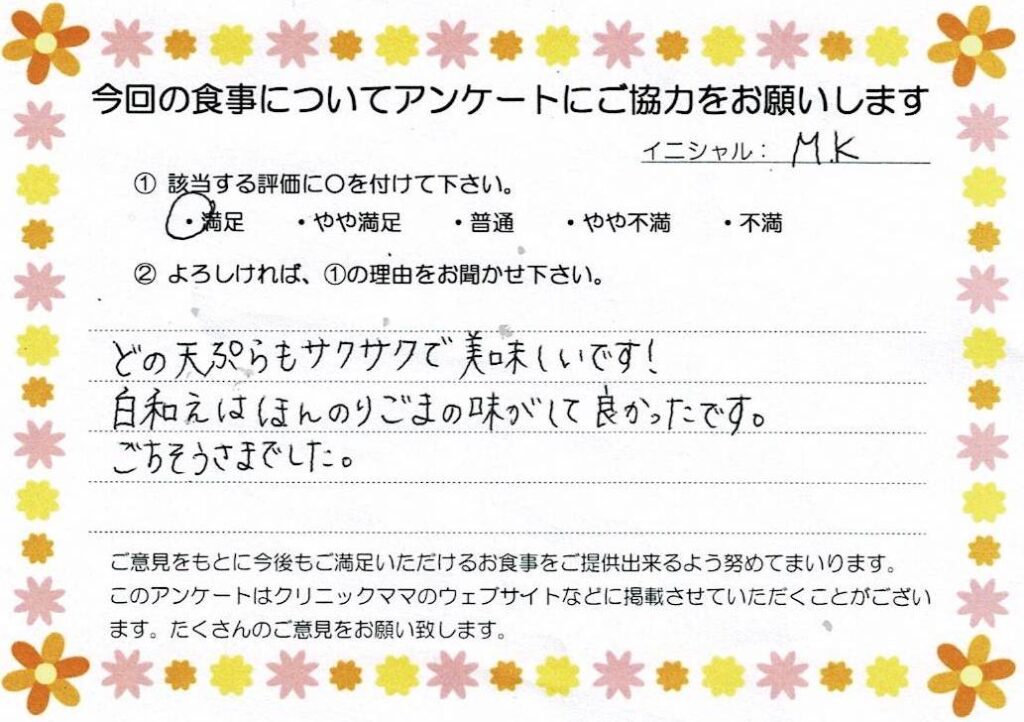 今回の食事についてアンケートにご協力をお願いします
イニシャル： M.K
① 該当する評価に〇を付けて下さい。
・満足 ・やや満足 ・普通 ・やや不満 ・不満
② よろしければ、①の理由をお聞かせ下さい。
どの天ぷらもサクサクで美味しいです！
白和えはほんのりごまの味がして良かったです。
ごちそうさまでした。
ご意見をもとに今後もご満足いただけるお食事をご提供出来るよう努めてまいります。
このアンケートはクリニックママのウェブサイトなどに掲載させていただくことがござい
ます。たくさんのご意見をお願い致します。